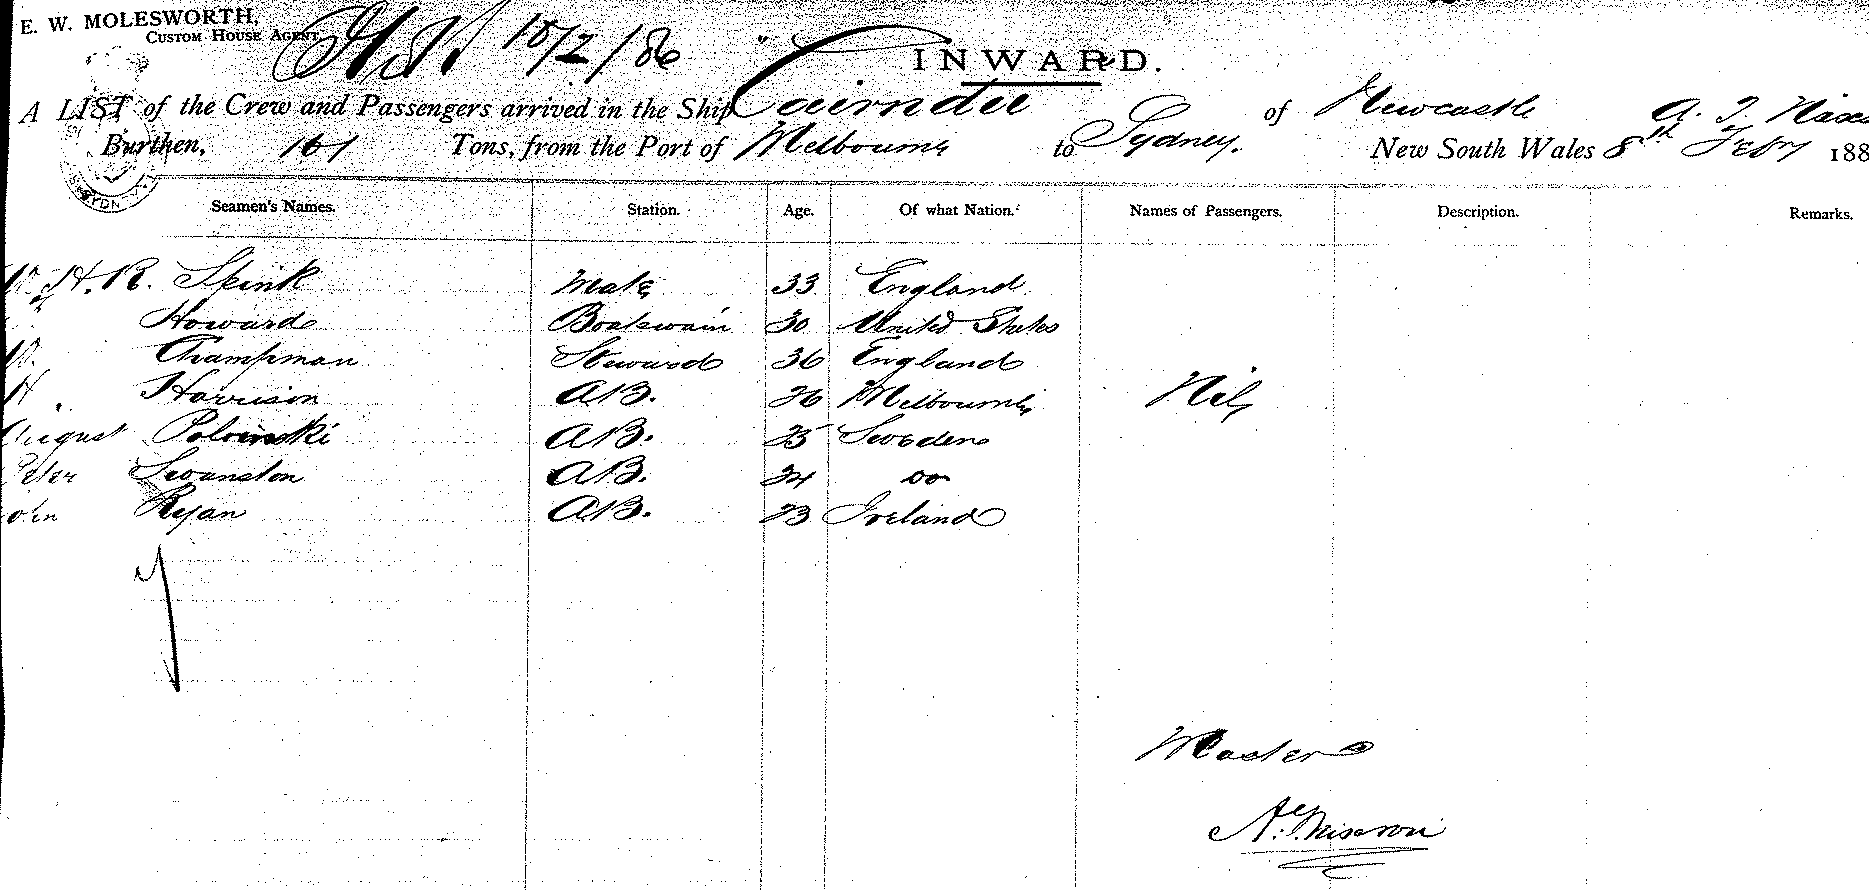 E. W. MOLESWORTH,
CUSTOM HOUSE AGENT.
15/2/86
INWARD.
A LIST of the Crew and Passengers arrived in the Ship Cairndu of Newcastle A. T.
Burthen, 161 Tons, from the Port of Melbourne to Sydney. New South Wales 8th Feby 188
Seamen's Names. Station. Age. Of what Nation. Names of Passengers. Description. Remarks.
H. R. Skink Mate 33 England
Howard Boatswain 30 United States
W. Champman Steward 36 England
H. Harrison A.B. 26 Melbourne Nil
August Polvinski A.B. 25 Sweden
Peter Swanston A.B. 24 do
ohn Ryan A.B. 23 Ireland
Master